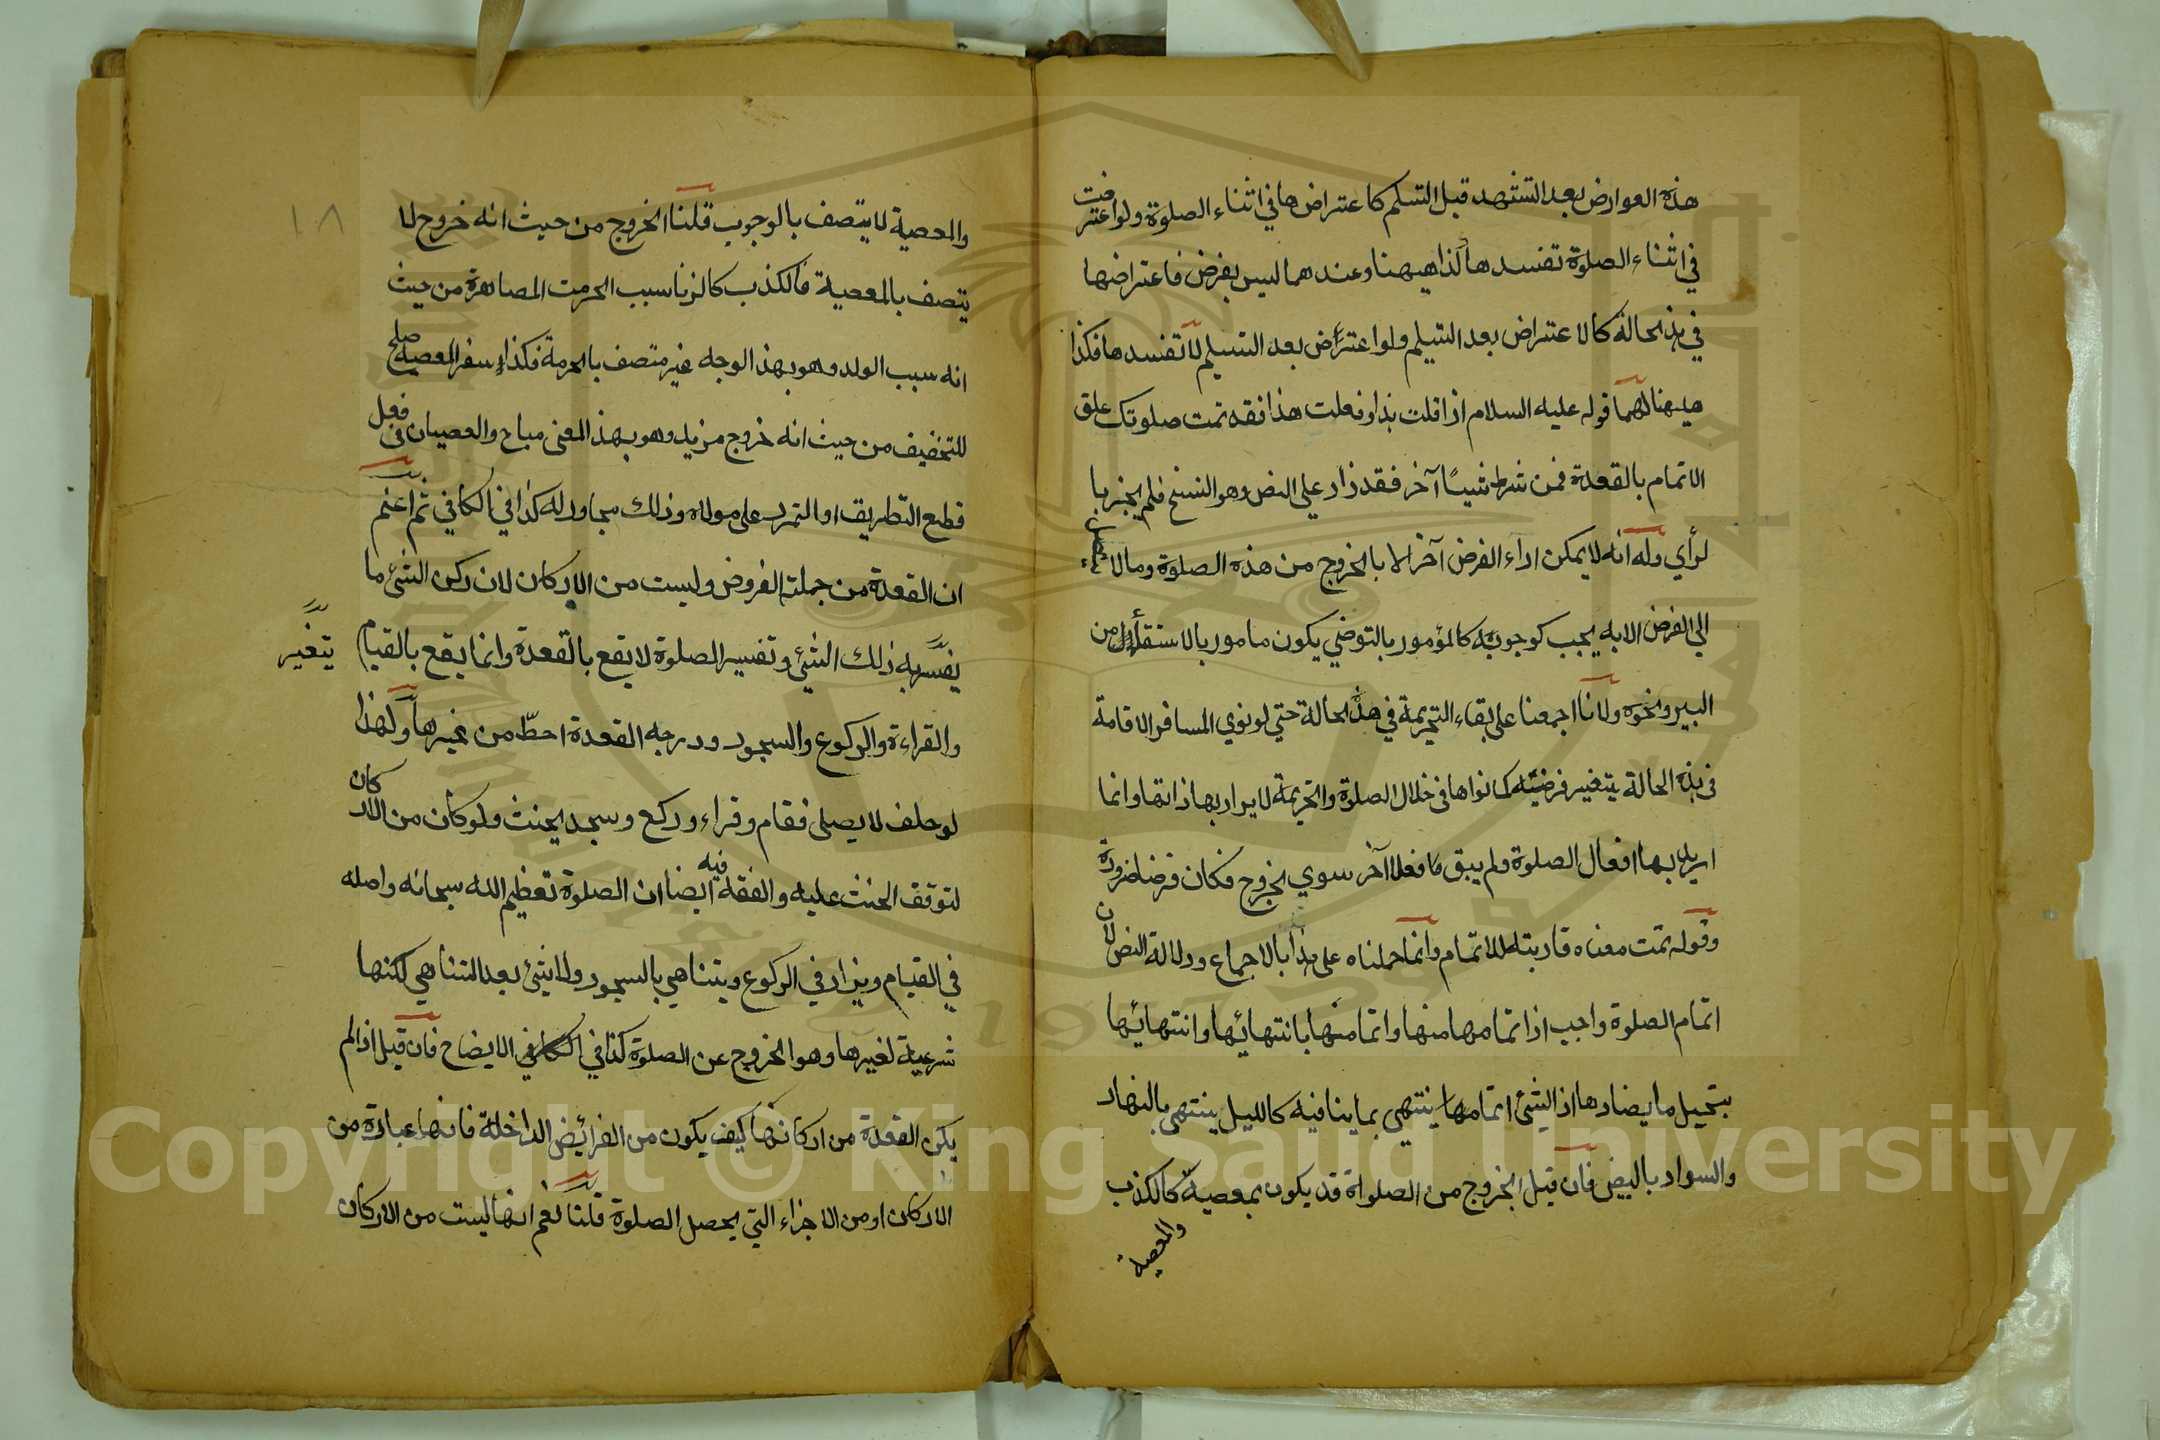 هذه العوارض بعد التشهد قبل التسلم كاعتراضها في اثناء الصلوة ولواعترضت
في اثناء الصلوة تفسدها كذا ههنا وعندهما ليس بفرض فاعتراضها
في هذ الحالة كالاعتراض بعد التسليم ولو اعترض بعد التسليم لا تفسدها فكذا
ههنا لهما قوله عليه السلام اذا قلت هذا وفعلت هذا فقد تمت صلوتك علق
الاتمام بالقعدة فمن شرط شيئا آخر فقد زاد علي النص وهو النسخ فلم يجز با
لرأي وله انه لا يمكن اداء الفرض آخر الا بالخروج من هذه الصلوة ومالا
الي الفرض الا به يجب كوجوبه كالمؤمور بالتوضي يكون مامور بالاستقاء من
البير ونحوه ولانا اجمعنا علي بقاء التحريمة في هذه الحالة حتي لو نوي المسافر الاقامة
في هذه الحالة يتغير فرضيته كما نواها في خلال الصلوة والتحريمة لا يراد بها ذاتها وانما
اريد بها افعال الصلوة ولم يبق ما فعلا آخر سوي الخروج فكان فرضا ضرورة
وقوله تمت معناه قاربته للاتمام وانما حملناه علي هذا بالاجماع ودلالة النص لان
اتمام الصلوة واجب اذا تمامها منها واتمامها بانتهائها وانتهائها
بتحيل ما يضادها اذ الشئ اتمامها ينتهي بما ينافيه كالليل ينتهي بالنهار
والسواد بالبيض فان قيل الخروج من الصلواة قد يكون بمعصية كالكذب
والمعصية
١٨
والمعصية لا يتصف بالوجوب قلنا الخروج من حيث انه خروج لا
يتصف بالمعصية فالكذب كالزنا سبب الحرمت المصاهرة من حيث
انه سبب الولد وهو بهذ الوجه غير متصف بالحرمة فكذا سفر المعصية صلح
للتخفيف من حيث انه خروج مزيد وهو بهذ المعنى مباح والعصيان في فعل
قطع الطريق او التمرد على مولاه وذلك مجاور له كذا في الكافي ثم اعلم
ان القعدة من جملة الفروض وليست من الاركان لان ركن الشئ ما
يفسر به ذلك الشئ وتفسير الصلوة لا يقع بالقعدة وانما يقع بالقيام
يتغير
والقراءة والركوع والسجود ودرجه القعدة احطّ من غيرها ولهذا
لو حلف لا يصلى فقام وقراء وركع وسجد يحنث ولو كان من الاركان
لتوقف الحنث عليه والفقه فيه ايضا ان الصلوة تعظيم الله سبحانه واصله
في القيام ويزاد في الركوع ويتناهي بالسجود ولا يبقى بعد التناهي لكنها
شرعية لغيرها وهو الخروج عن الصلوة كذا في الكافي الايضاح فان قيل اذا لم
يكن القعدة من اركانها كيف يكون من الفرائض الداخلة فانها عبارة من
الاركان او من الاجزاء التي يحصل الصلوة قلنا نعم انها ليست من الاركان
Copyright © King Saud University